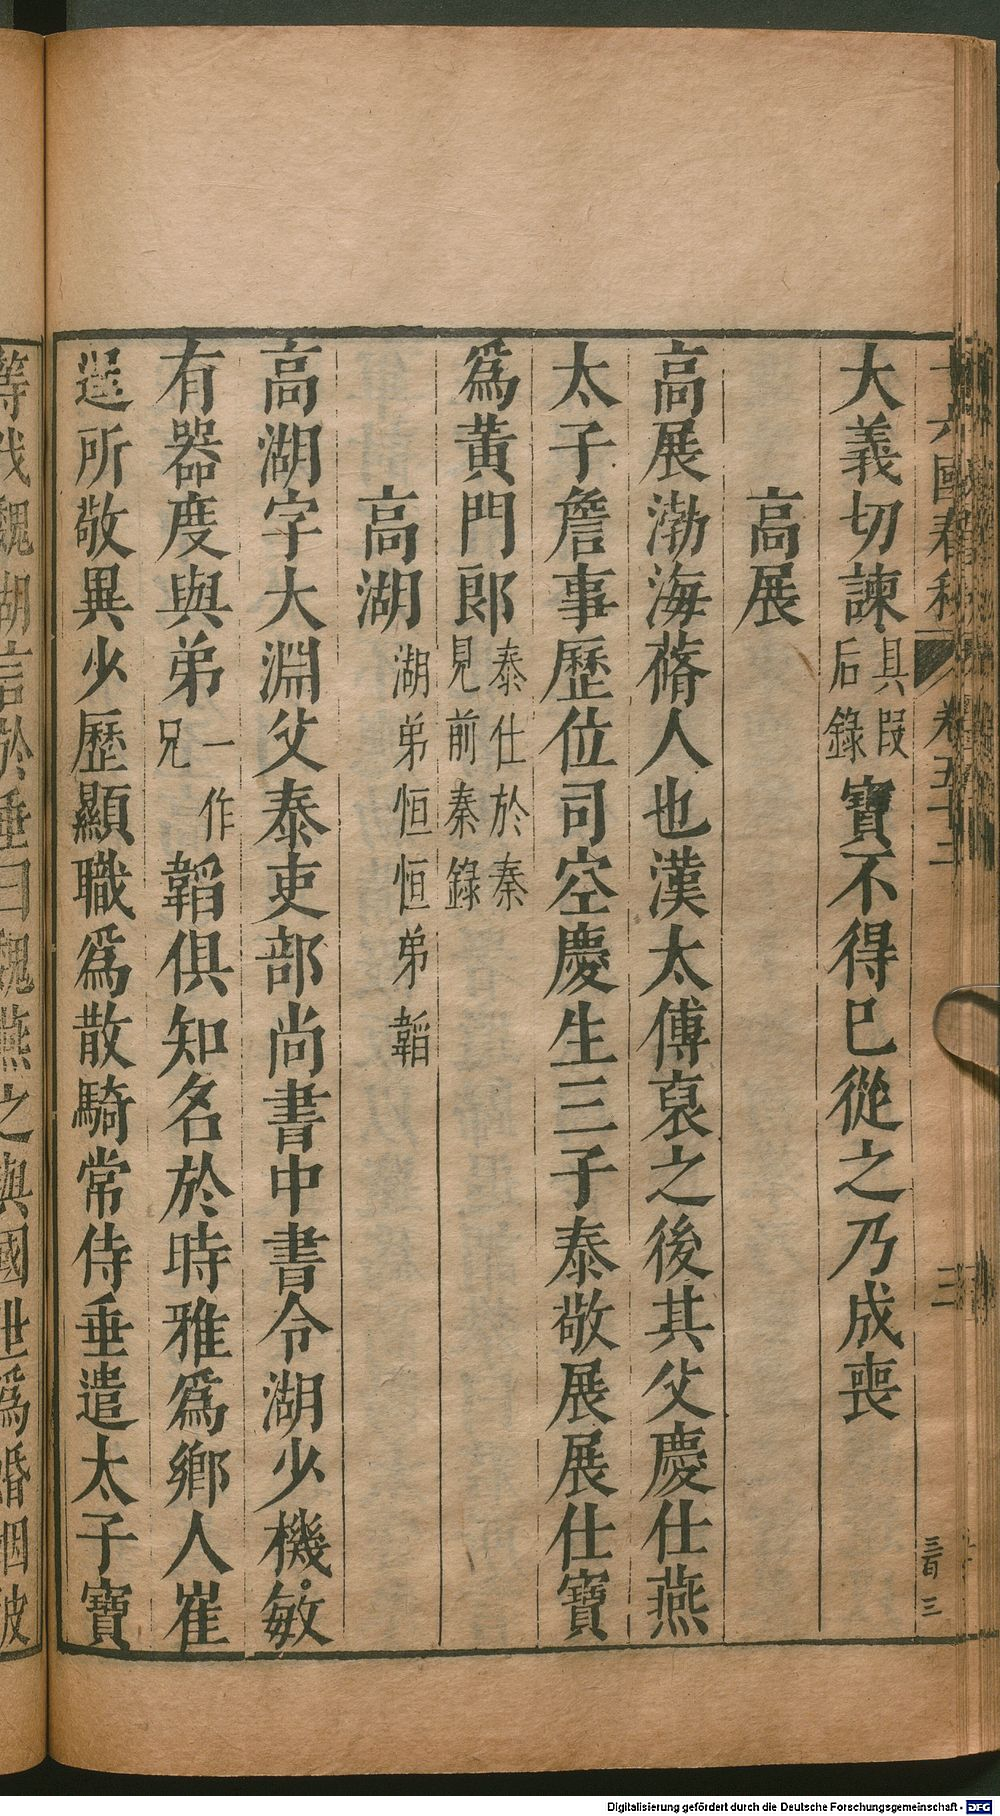 大義切諫具段后錄寶不得已從之乃成喪
高展
高展渤海蓨人也漢太傅裒之後其父慶仕燕
太子詹事歷位司空慶生三子泰敬展展仕寶
爲黃門郎泰仕於秦見前秦錄
高湖湖弟恒恒弟韜
高湖字大淵父泰吏部尚書中書令湖少機敏
有器度與弟一作兄韜俱知名於時雅爲鄉人崔
逞所敬異少歷顯職爲散騎常侍垂遣太子寶
等伐魏湖言於垂曰魏燕之與國世爲婚姻彼
國春秋 卷五十二 三
Digitalisierung gefördert durch die Deutsche Forschungsgemeinschaft - DFG